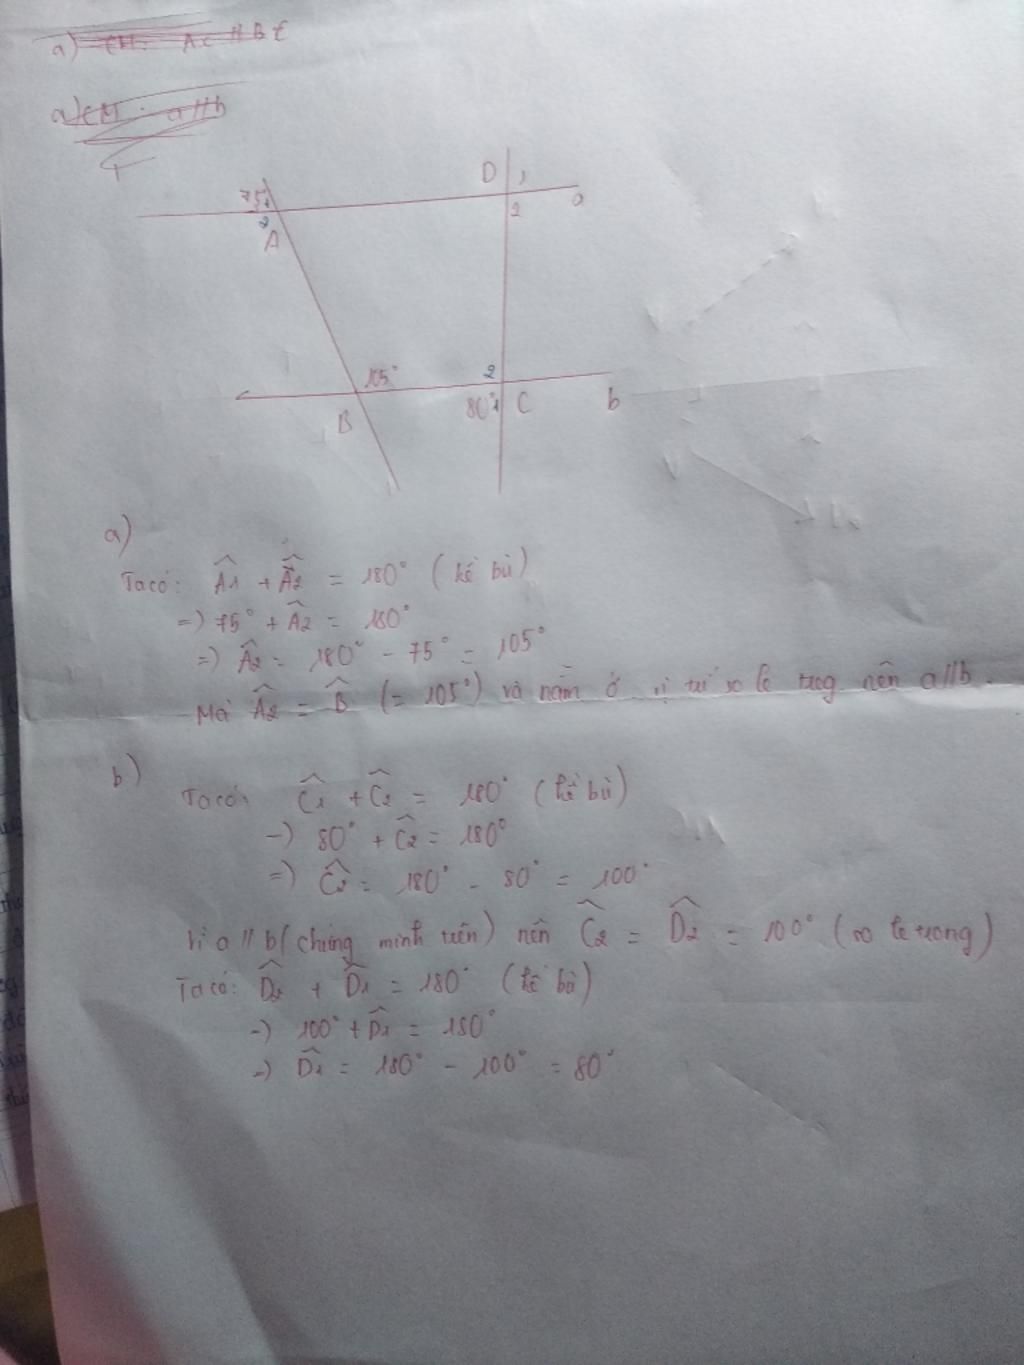 a) CM: AC // BE
a) CM: a//b
75° 1
2
A
D 1
2
a
105°
B
2
80° 1 C
b
a)
Ta có: Â1 + Â2 = 180° (kề bù)
=) 75° + Â2 = 180°
=) Â2 = 180° - 75° = 105°
Mà Â2 = B̂ (= 105°) và nằm ở vị trí so le trog nên a//b.
b)
Ta có: Ĉ1 + Ĉ2 = 180° (kề bù)
=) 80° + Ĉ2 = 180°
=) Ĉ2 = 180° - 80° = 100°
Vì a // b (chứng minh trên) nên Ĉ2 = D̂2 = 100° (so le trong)
Ta có: D̂2 + D̂1 = 180° (kề bù)
=) 100° + D̂1 = 180°
=) D̂1 = 180° - 100° = 80°